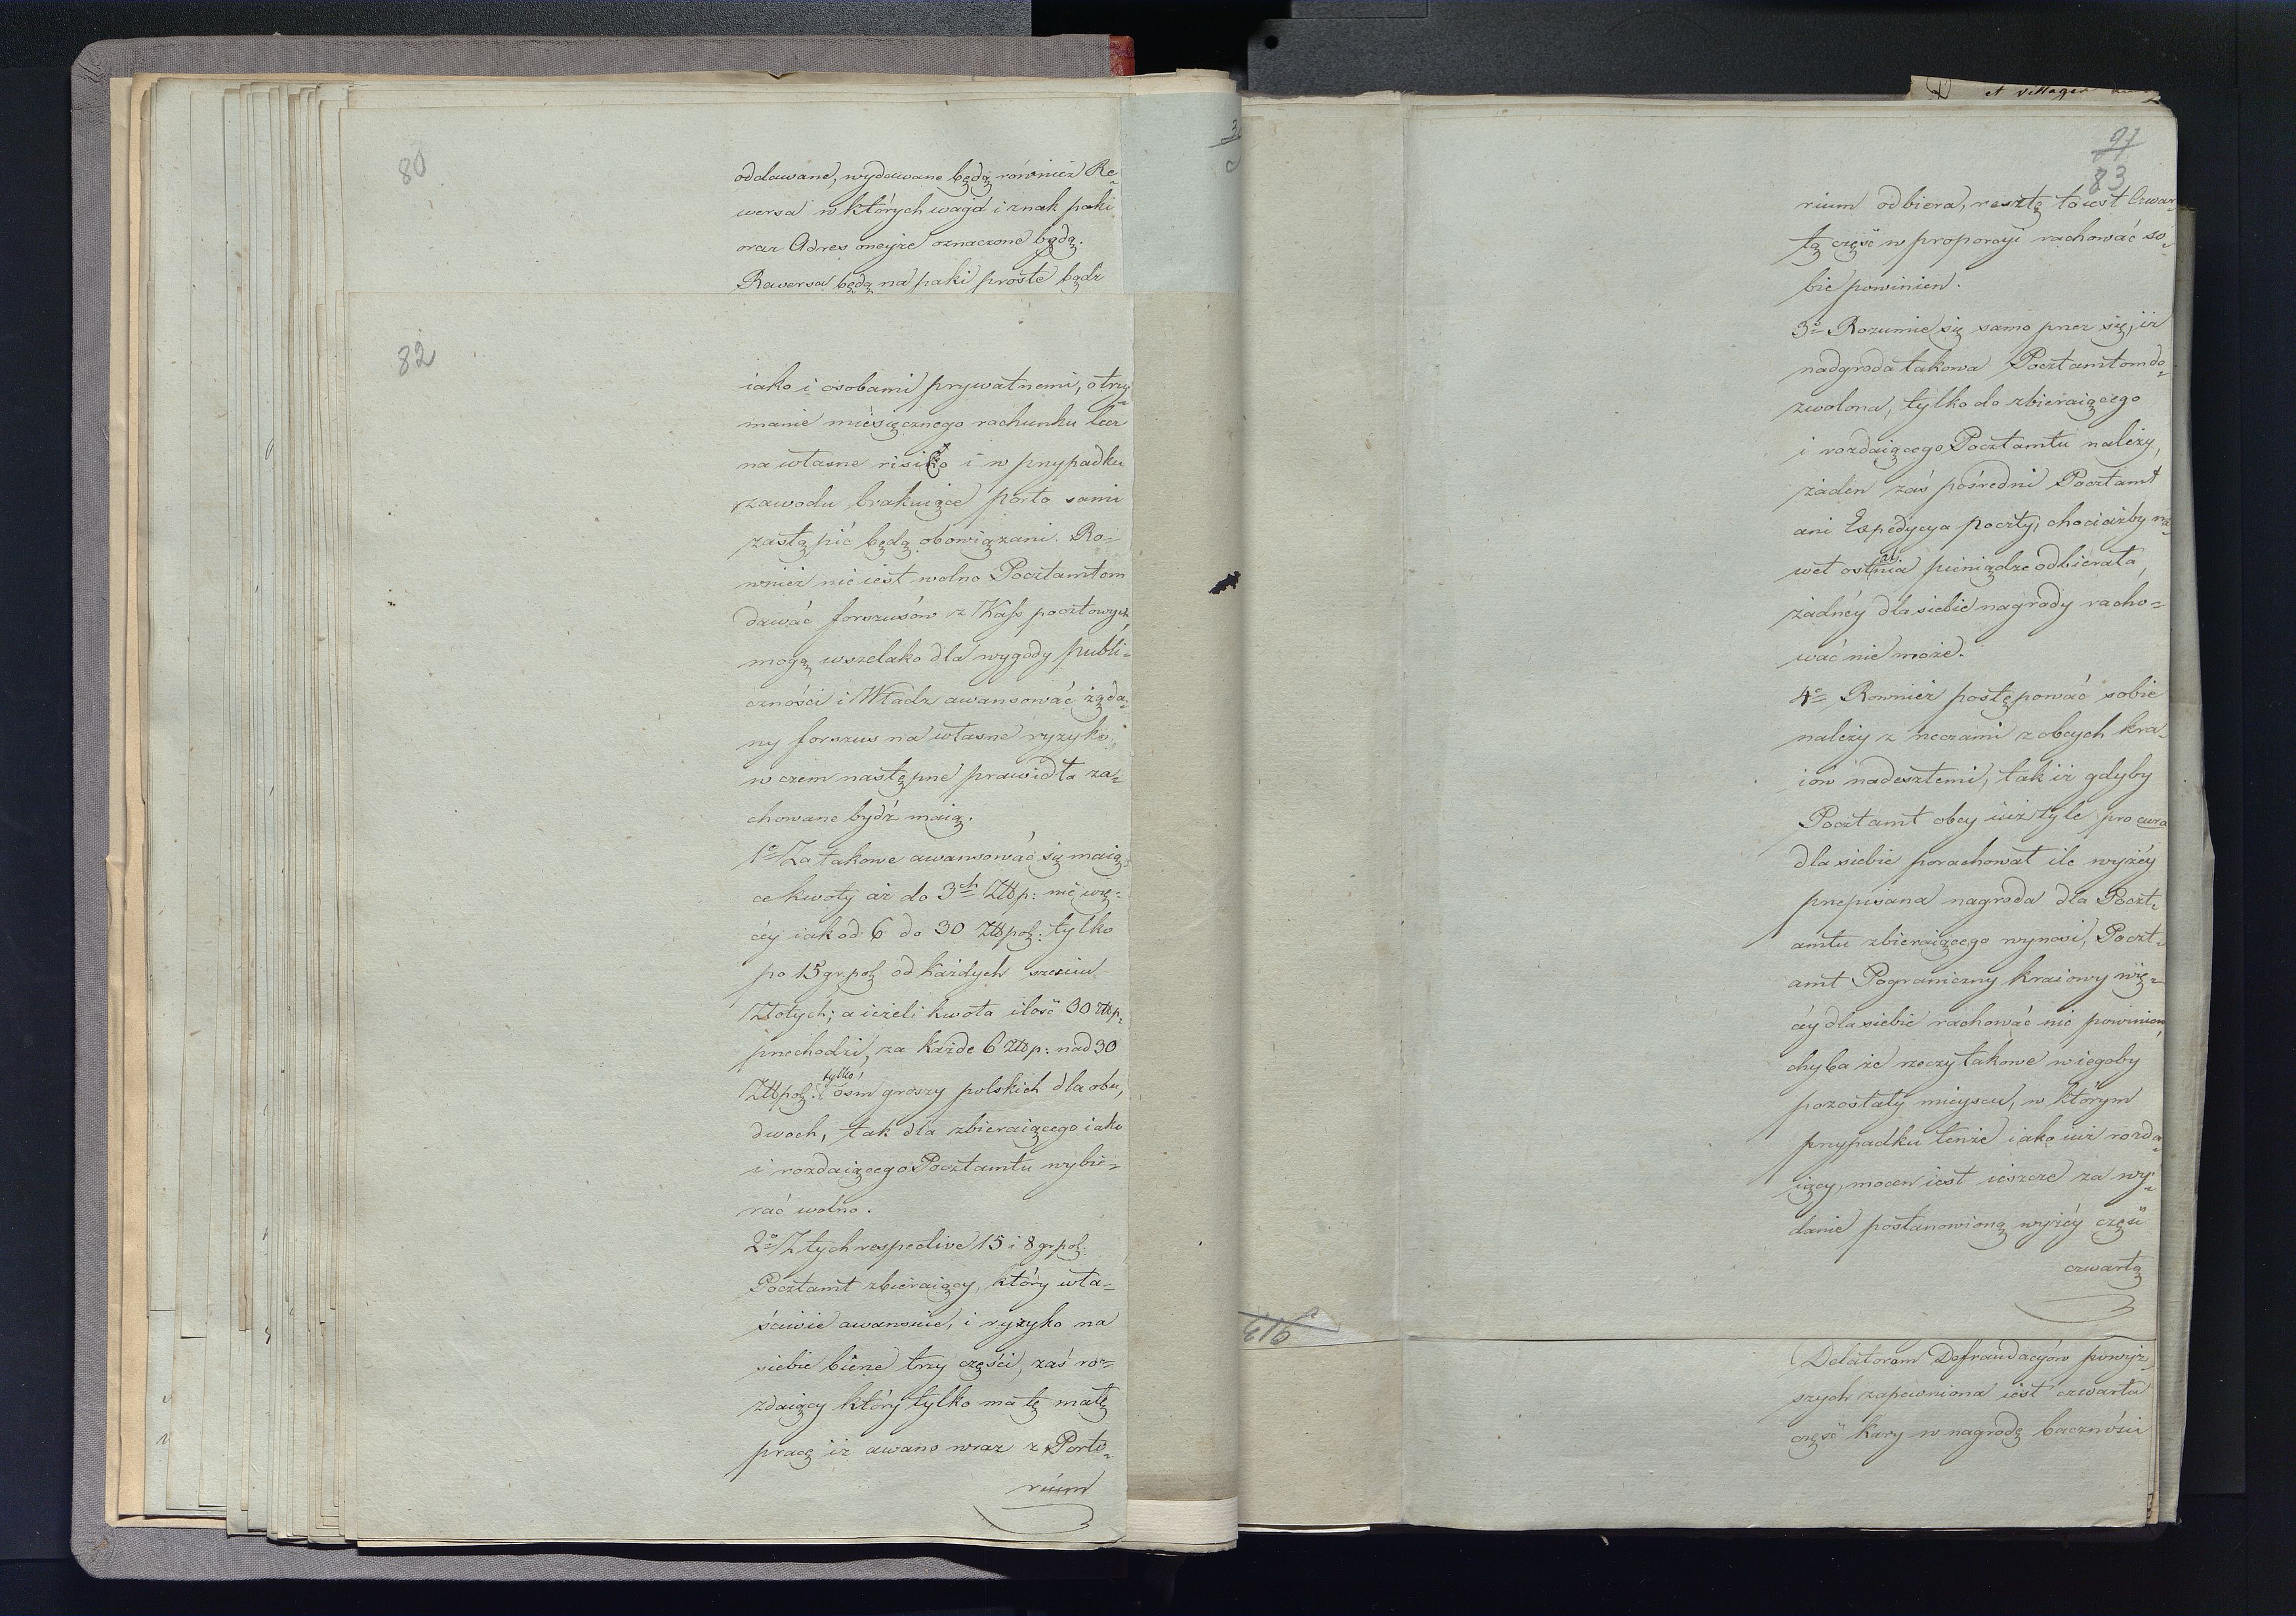 80
oddawane, wydawane będą również Re-
wersa w których waga i znak paki
oraz Adres oneyże oznaczone będą.
Rewersa będą na paki proste bądz
82
iako i osobami prywatnemi, otrzy-
manie miesięcznego rachunku lecz
na własne risiko i w przypadku
zawodu brakuiące porto sami
zastąpić będą obowiązani. Ro-
wnież nie iest wolno Pocztamtom
dawać forszusów z Kass pocztowych,
mogą wszelako dla wygody publi-
czności i Władz awansować żąda-
ny forszus na własne ryzyko,
w czem następne prawidła za-
chowane bydź maią.
1o Za takowe awansować się maią-
ce kwoty aż do 3ch Złłp: nic wię-
céy iak od 6 do 30 Złłpol: tylko
po 15 gr. pol od każdych sześciu
Złotych; a ieżeli kwota ilość 30 Złłp:
przechodzi, za każde 6 Złłp: nad 30
Złłpol: tylko osm groszy polskich dla obu,
dwoch, tak dla zbieraiącego iako
i rozdaiącego Pocztamtu wybie-
rać wolno.
2o Z tych respective 15 i 8 gr. pol:
Pocztamt zbieraiący, który wła-
ściwie awansuie, i ryzyko na
siebie bierze trzy części, zaś roz-
zdaiący który tylko ma tę małę
pracę iż awans wraz z Porto-
rium
et villages
91
83
rium odbiera, resztę to iest Czwar-
tą część w proporcyi rachować so-
bie powinien.
3o Rozumie się samo przez się, iż
nadgroda takowa Pocztamtom do-
zwolona, tylko do zbieraiącego
i rozdaiącego Pocztamtu należy,
żaden zaś pośredni Pocztamt
ani Expedycya poczty, chociażby na-
wet ostatnia pieniądze odbierała,
żadnéy dla siebie nagrody racho-
wać nie może.
4o Rownież postępować sobie
należy z rzeczami z obcych kra-
iów nadeszłemi, tak iż gdyby
Pocztamt obcy iuż tyle pro cura
dla siebie porachował ile wyżéy
przepisana nagroda dla Poczt-
amtu zbieraiącego wynosi, Poczt-
amt Pograniczny kraiowy wię-
céy dla siebie rachować nie powinien,
chyba że rzeczy takowe w iegoby
pozostały mieyscu, w którym
przypadku tenże iako iuż rozda-
iący, mocen iest ieszcze za wy-
danie postanowioną wyżéy część
czwartą
416
Delatorom Defraudacyów powyż-
szych zapewniona iest czwarta
część kary w nagrodę baczności